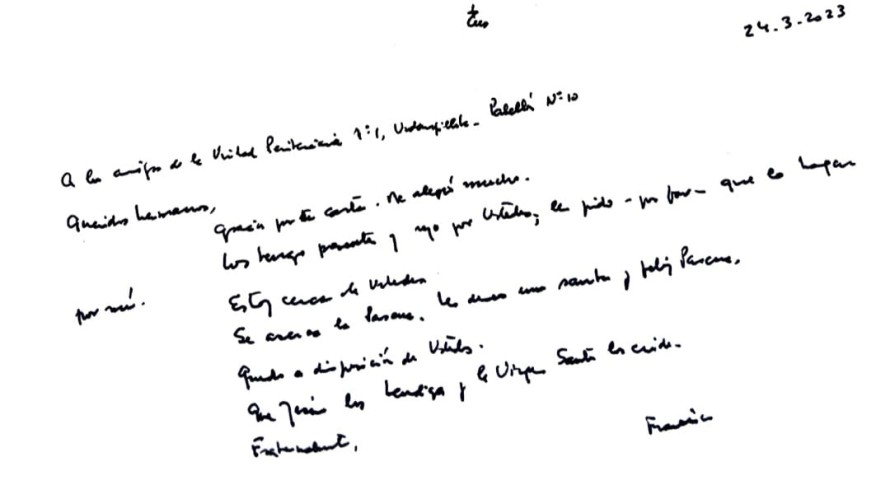 24.3.2023
A los amigos de la Unidad Penitenciaria N°1, Pabellón N°10
Queridos hermanos,
gracias por la carta. Me alegró mucho.
Los tengo presente y rezo por Ustedes; les pido - por favor - que lo hagan
por mí.
Estoy cerca de Ustedes
Se acerca la Pascua. Les deseo una santa y feliz Pascua.
Quedo a disposición de Ustedes.
Que Jesús los bendiga y la Virgen Santa los cuide.
Fraternalmente,
Francisco